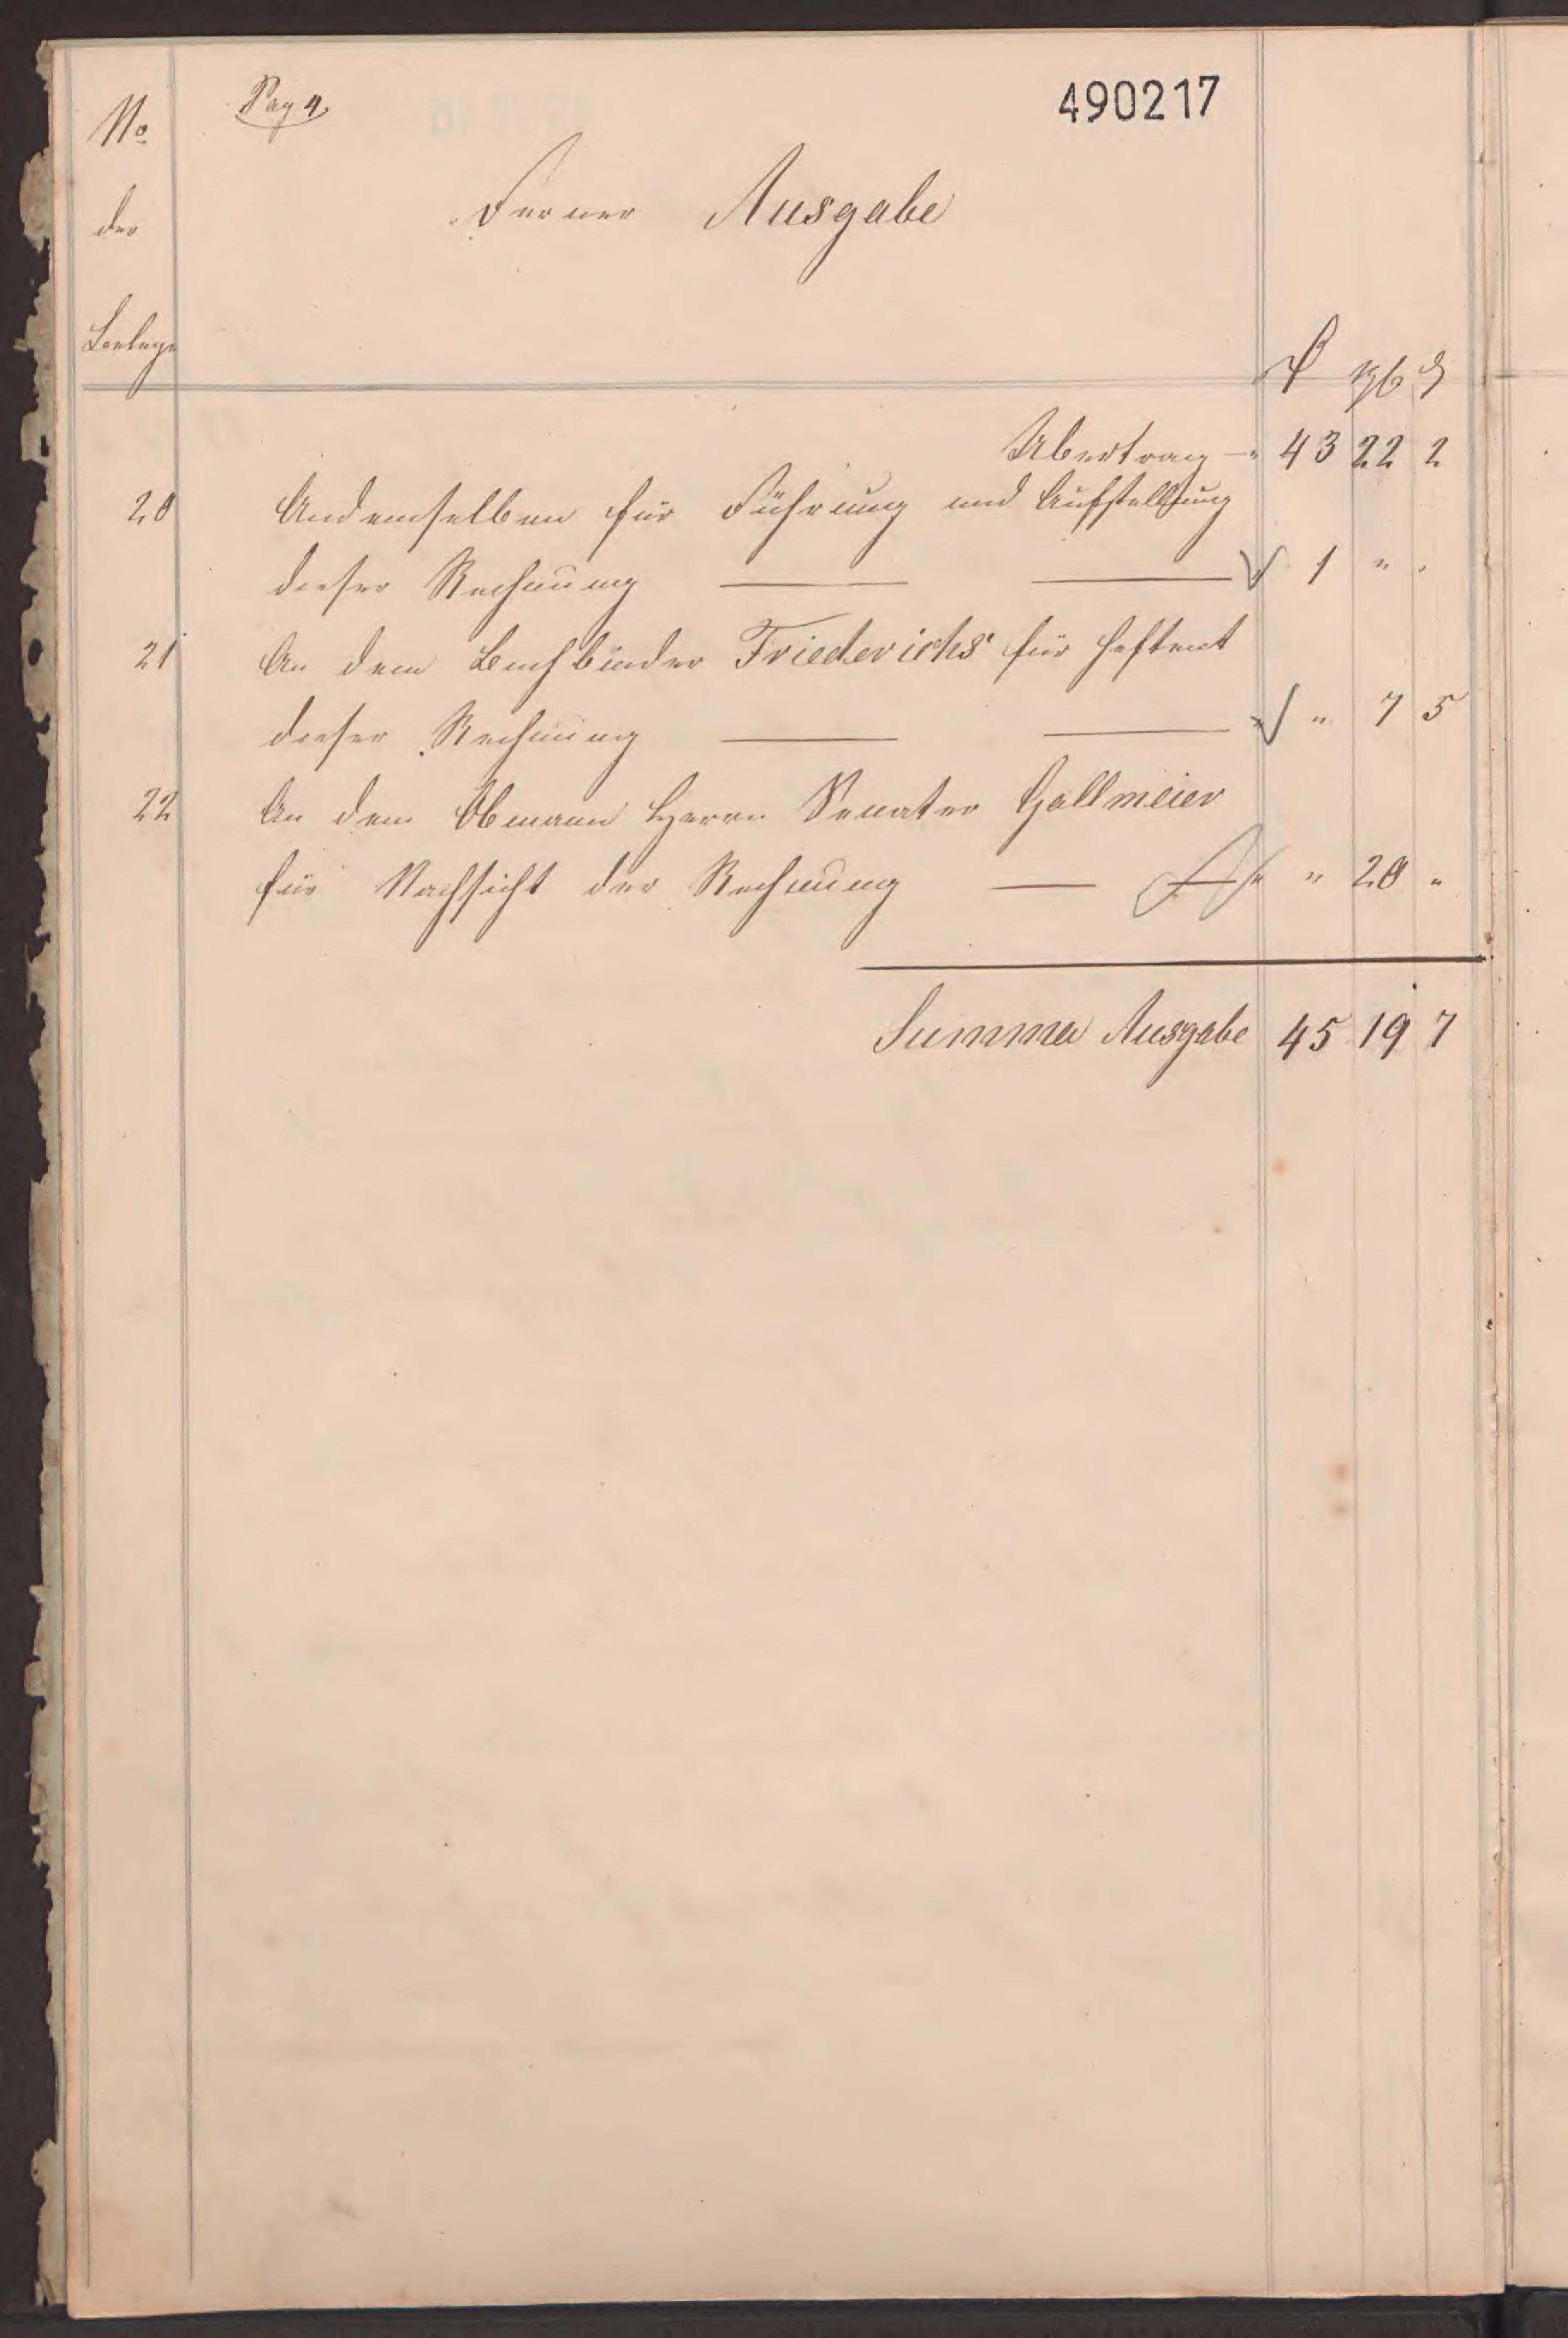 No
Pag 4
490217
der
Ferner Ausgabe
Beelege
₰ ngl ₰
Ubertrag — 43 22 2
20 Andemselben für Führung und Aufstellung
dieser Rechnung — — 1 " "
21 An dem Buchbinder Friederichs für Heftent
dieser Rechnung — — " 7 5
22 An dem Obmann Herrn Senator Gallmeier
für Nachsicht der Rechnung — " 20 "
Summa Ausgabe 45 19 7